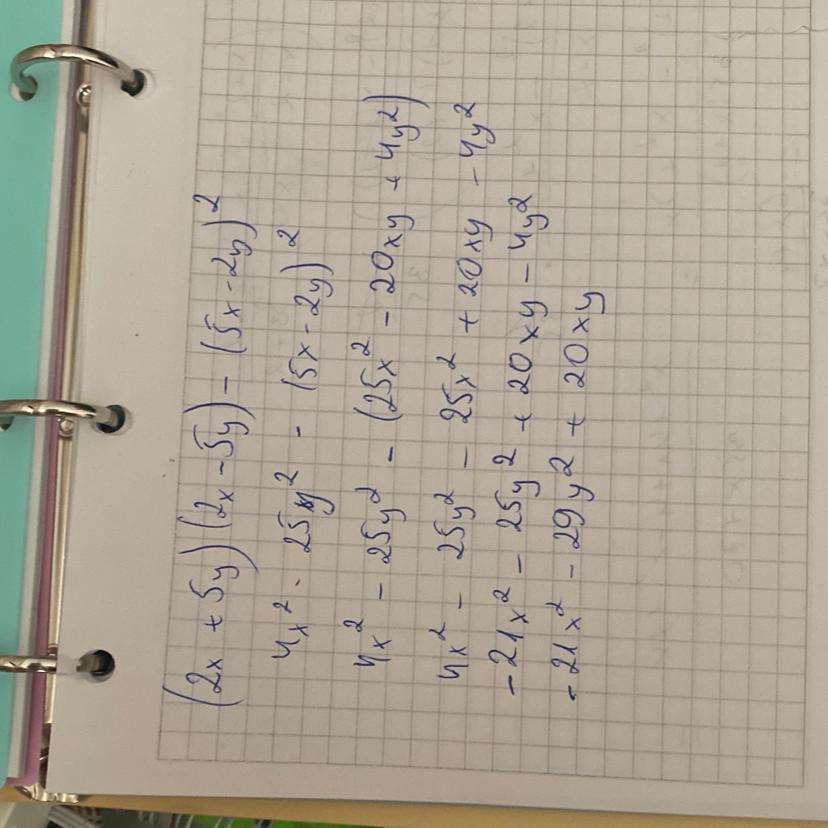 (2x + 5y)(2x - 5y) - (5x - 2y)²
4x² - 25y² - (5x - 2y)²
4x² - 25y² - (25x² - 20xy + 4y²)
4x² - 25y² - 25x² + 20xy - 4y²
-21x² - 25y² + 20xy - 4y²
-21x² - 29y² + 20xy